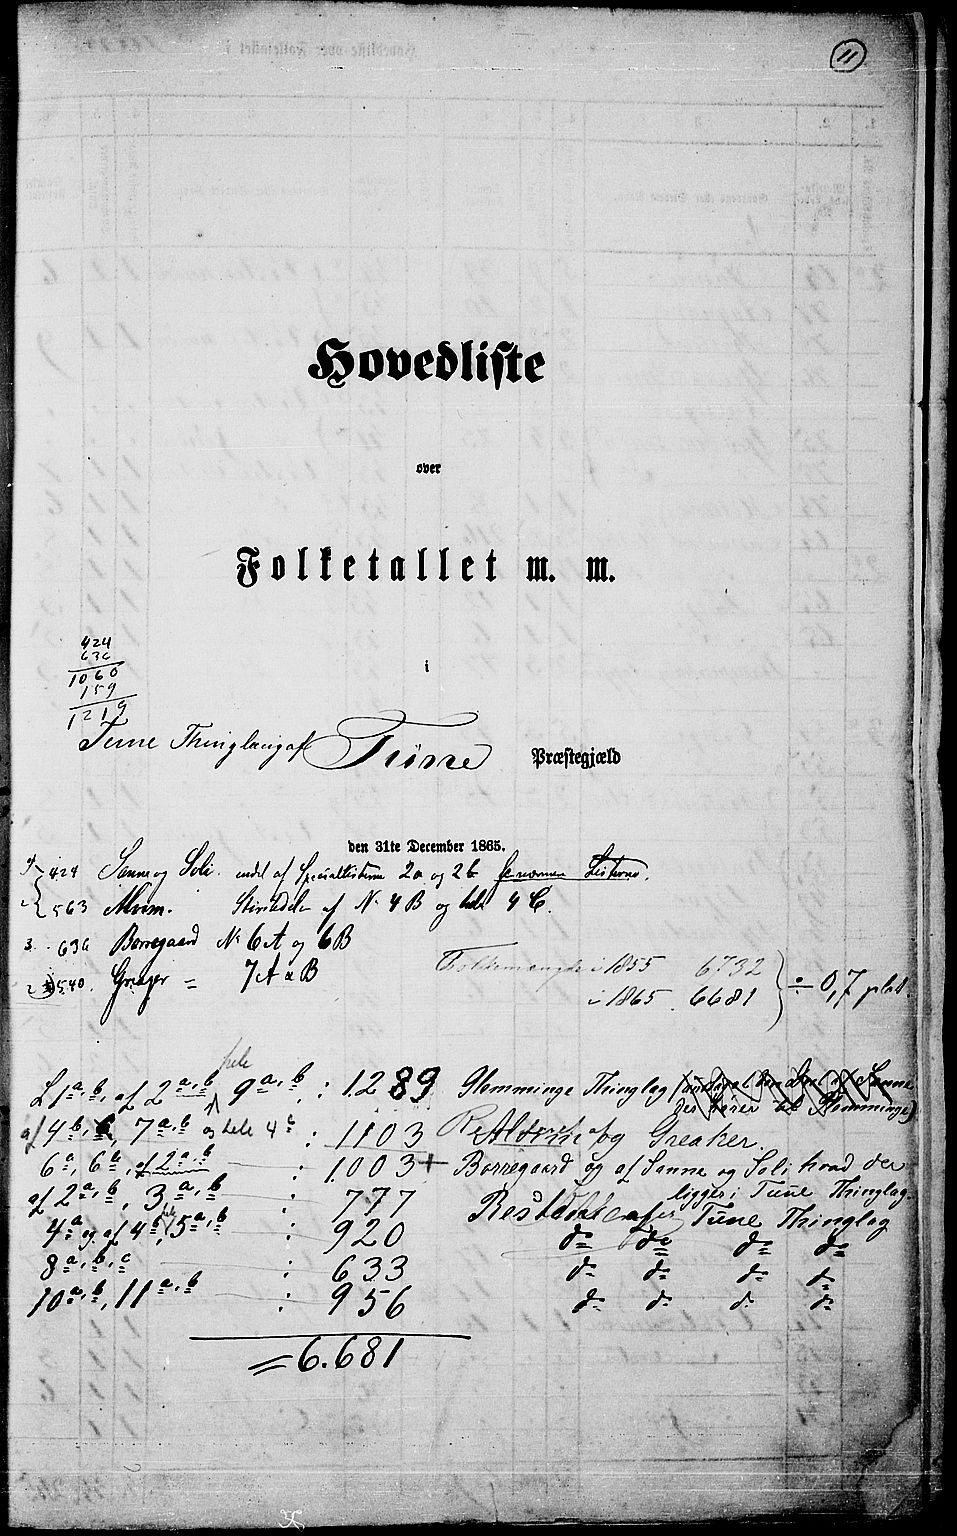 11
Hovedliste
over
Folketallet m. m.
i
424
636
1060
159
1219
Tune Thinglaug af Tune Præstegjæld
den 31te December 1865.
424 Sanne og Soli. undt af Speciallisterne 2a og 2b
563 Alvim. af No 4B og hele 4C.
3. 636 Borregaard No 6A og 6B
540. Greager = 7A & B
Folkemængde i 1855 6732
i 1865. 6681 } ÷ 0,7 pCt.
hele
L 1a,b, af 2a,b 9a,b : 1289 Glomminge Thinglag
af 4b, 7a,b og hele 4c : 1103 Alvim og Greaker
6a, 6b, af 2a,b : 1.003 + Borregaard og af Sanne og Soli hvad der
ligger i Tune Thinglag.
af 2a,b, 3a,b : 777 Resten af Tune Thinglag
4a og af 4b, 5a,b : 920 do do do do
8a,b,c : 633 do do do do
10a,b, 11a,b : 956 do do do do
= 6.681